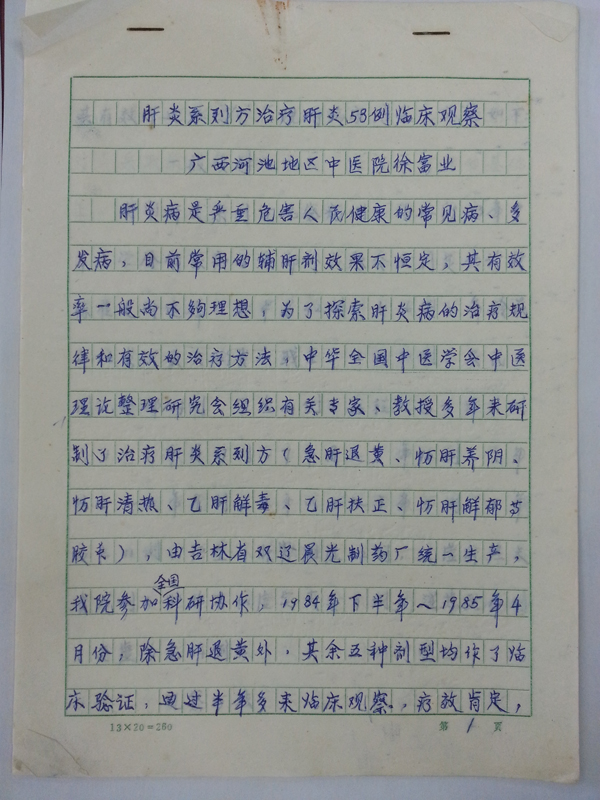 肝炎系列方治疗肝炎53例临床观察
广西河池地区中医院徐富业
肝炎病是严重危害人民健康的常见病、多
发病，目前常用的辅肝剂效果不恒定，其有效
率一般尚不够理想，为了探索肝炎病的治疗规
律和有效的治疗方法，中华全国中医学会中医
理论整理研究会组织有关专家、教授多年来研
制了治疗肝炎系列方（急肝退黄、怡肝养阴、
怡肝清热、乙肝解毒、乙肝扶正、怡肝解郁等
胶束），由吉林省双辽晨光制药厂统一生产，
我院参加全国科研协作，1984年下半年～1985年4
月份，除急肝退黄外，其余五种剂型均作了临
床验证，通过半年多来临床观察，疗效肯定，
13×20=260
第1页